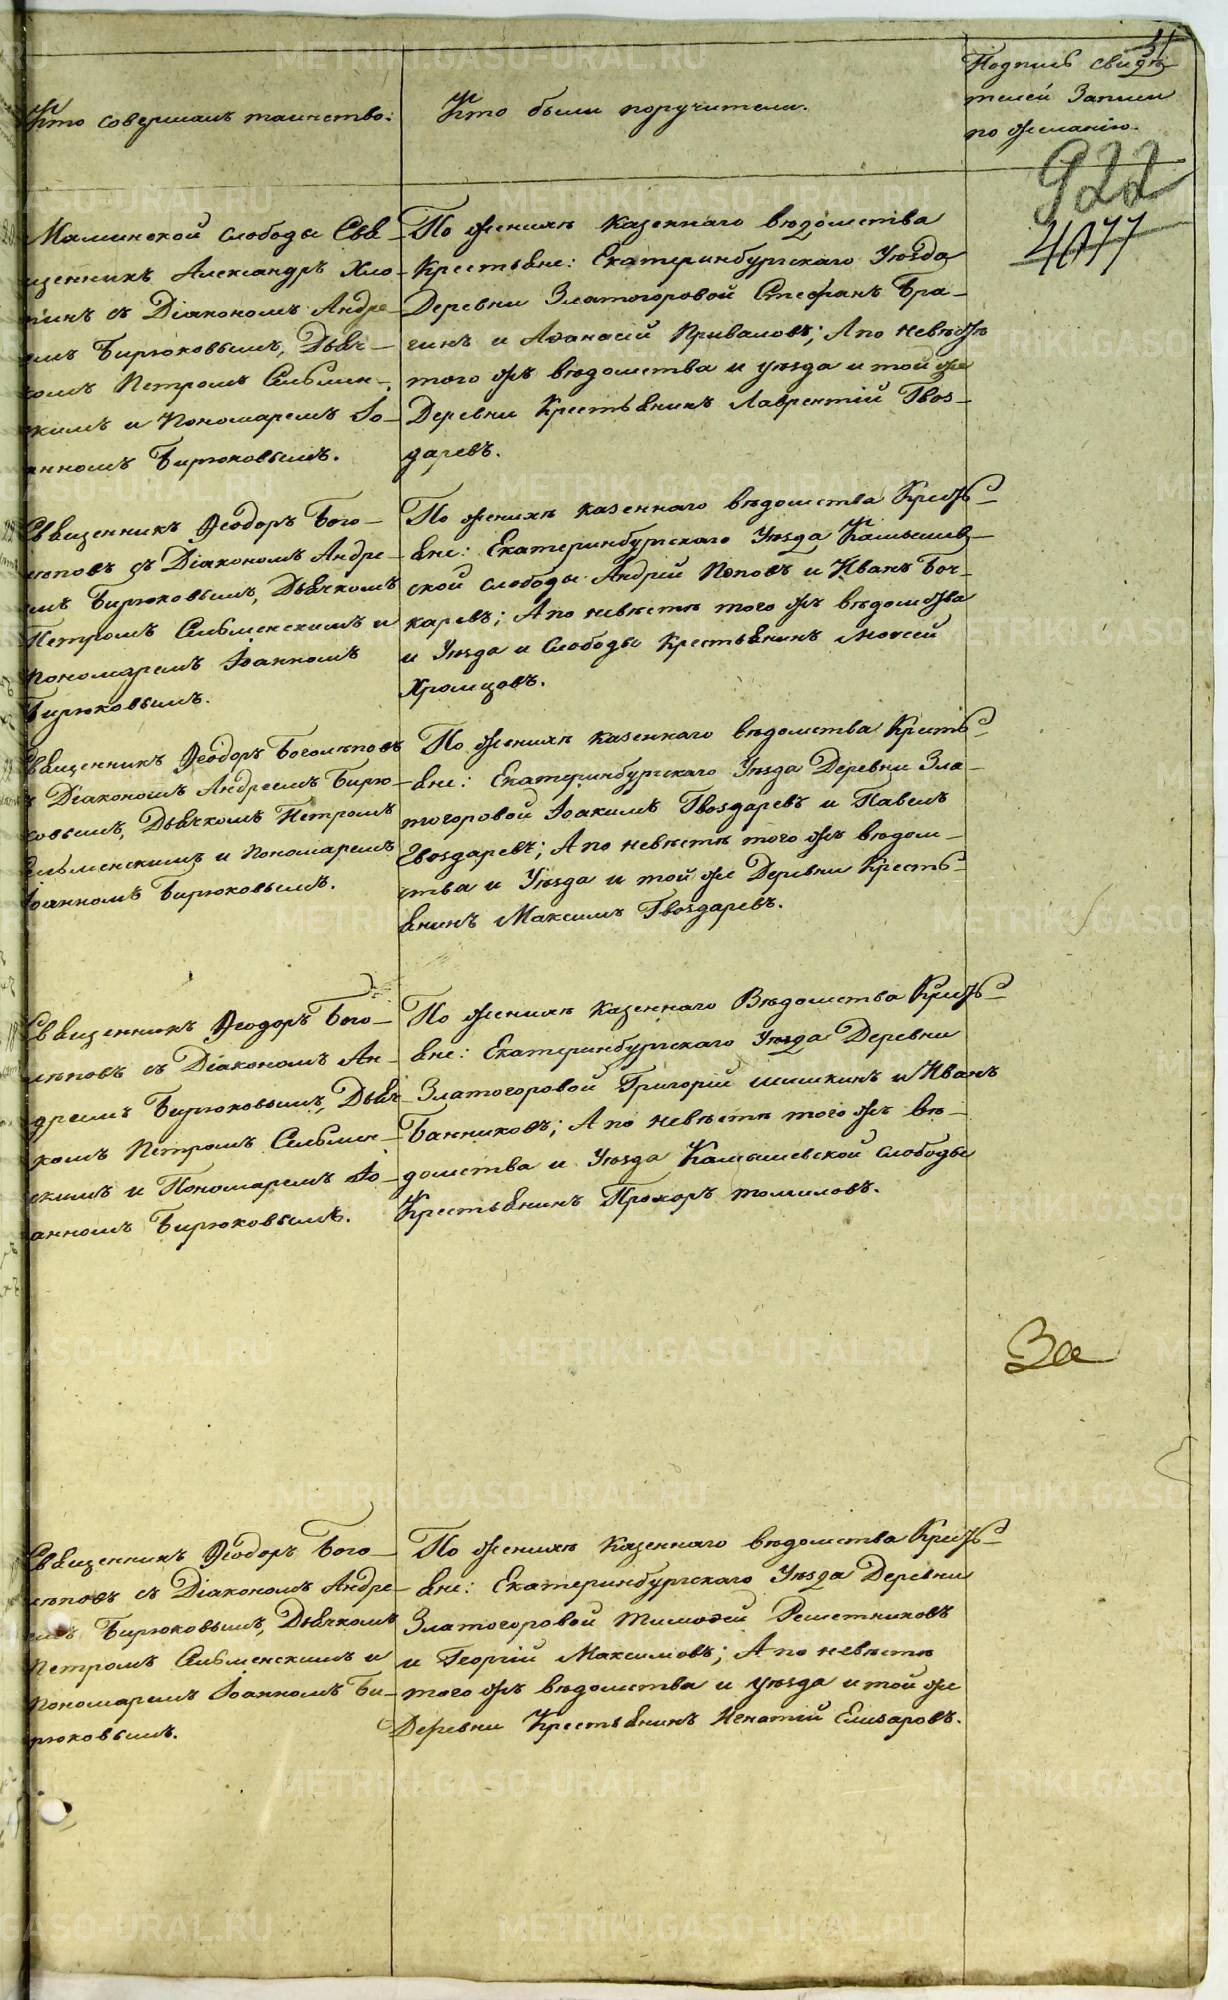 Кто совершалъ таинство:
Кто были поручители.
Подпись свидѣ-
телей Записи
по желанію.
922
4077
Маминской слободы Свя-
щенникъ Александръ Хло-
пинъ съ Діакономъ Андре-
емъ Бирюковымъ, Дьяч-
комъ Петромъ Сельмен-
скимъ и Пономаремъ Іо-
анномъ Бирюковымъ.
По женихѣ казеннаго вѣдомства
Крестьяне: Екатеринбургскаго Уѣзда
Деревни Златогоровой Стефанъ Бра-
гинъ и Аѳанасій Приваловъ; А по невѣстѣ
того жъ вѣдомства и уѣзда и той же
Деревни Крестьянинъ Лаврентій Гвоз-
даревъ.
Священникъ Ѳеодоръ Бого-
лѣповъ съ Діакономъ Андре-
емъ Бирюковымъ, Дьячкомъ
Петромъ Сельменскимъ и
Пономаремъ Іоанномъ
Бирюковымъ.
По женихѣ казеннаго вѣдомства Кресть-
яне: Екатеринбургскаго Уѣзда Камышев-
ской слободы Андрей Поповъ и Иванъ Боч-
каревъ; А по невѣстѣ того жъ вѣдомства
и Уѣзда и Слободы Крестьянинъ Моѵсей
Хромцовъ.
Священникъ Ѳеодоръ Боголѣповъ
съ Діакономъ Андреемъ Бирю-
ковымъ, Дьячкомъ Петромъ
Сельменскимъ и Пономаремъ
Іоанномъ Бирюковымъ.
По женихѣ казеннаго вѣдомства Кресть-
яне: Екатеринбургскаго Уѣзда Деревни Зла-
тогоровой Іоакимъ Гвоздаревъ и Павелъ
Гвоздаревъ; А по невѣстѣ того жъ вѣдом-
ства и Уѣзда и той же Деревни Кресть-
янинъ Максимъ Гвоздаревъ.
Священникъ Ѳеодоръ Бого-
лѣповъ съ Діакономъ Ан-
дреемъ Бирюковымъ, Дьяч-
комъ Петромъ Сельмен-
скимъ и Пономаремъ Іо-
анномъ Бирюковымъ.
По женихѣ казеннаго Вѣдомства Кресть-
яне: Екатеринбургскаго Уѣзда Деревни
Златогоровой Григорій Шишкинъ и Иванъ
Банниковъ; А по невѣстѣ того жъ вѣ-
домства и Уѣзда Камышевской слободы
Крестьянинъ Прохоръ Томиловъ.
За
Священникъ Ѳеодоръ Бого-
лѣповъ съ Діакономъ Андре-
емъ Бирюковымъ, Дьячкомъ
Петромъ Сельменскимъ и
Пономаремъ Іоанномъ Би-
рюковымъ.
По женихѣ казеннаго вѣдомства Кресть-
яне: Екатеринбургскаго Уѣзда Деревни
Златогоровой Тимоѳей Решетниковъ
и Георгій Максимовъ; А по невѣстѣ
того жъ вѣдомства и уѣзда и той же
Деревни Крестьянинъ Игнатій Елизаровъ.
METRIKI.GASO-URAL.RU